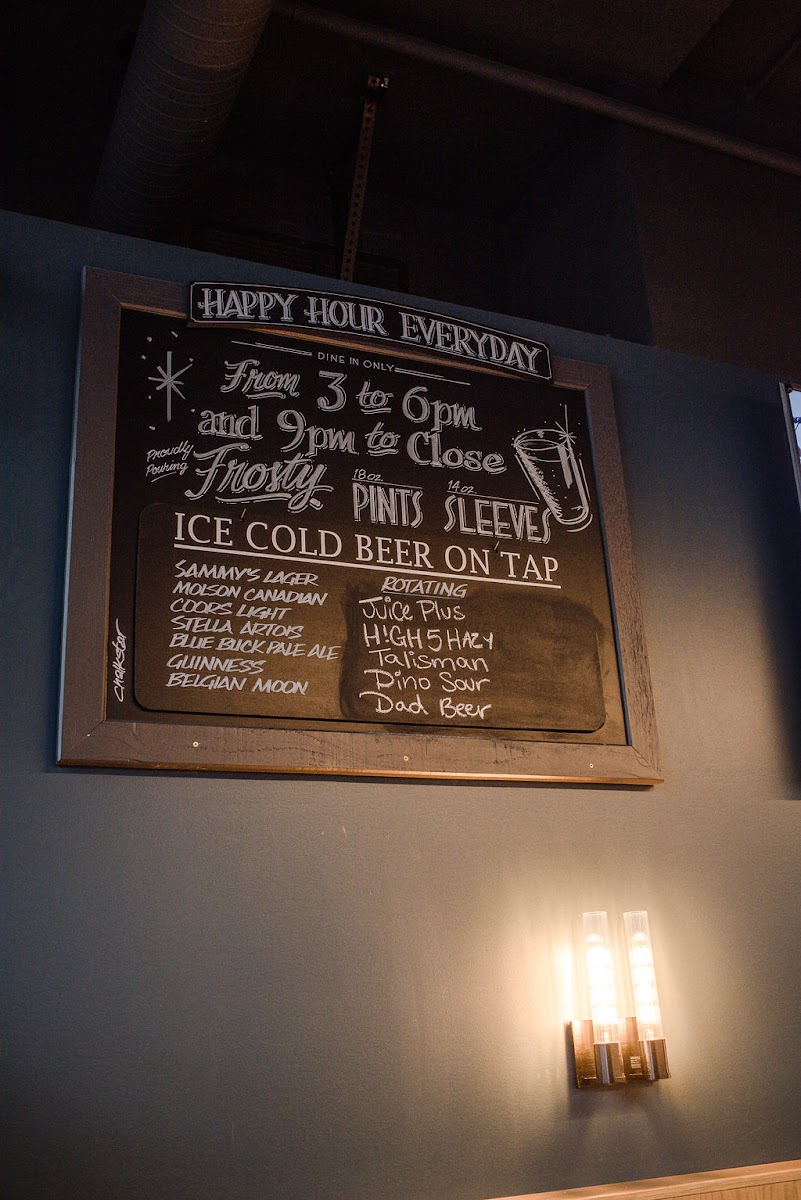 HAPPY HOUR EVERYDAY
DINE IN ONLY
From 3 to 6pm
and 9pm to Close
Proudly
Pouring
Frosty
18 oz
PINTS
14 oz
SLEEVES
ICE COLD BEER ON TAP
SAMMY'S LAGER
MOLSON CANADIAN
COORS LIGHT
STELLA ARTOIS
BLUE BUCK PALE ALE
GUINNESS
BELGIAN MOON
ROTATING
Juice Plus
H!GH 5 HAZY
Talisman
Dino Sour
Dad Beer
chalkster